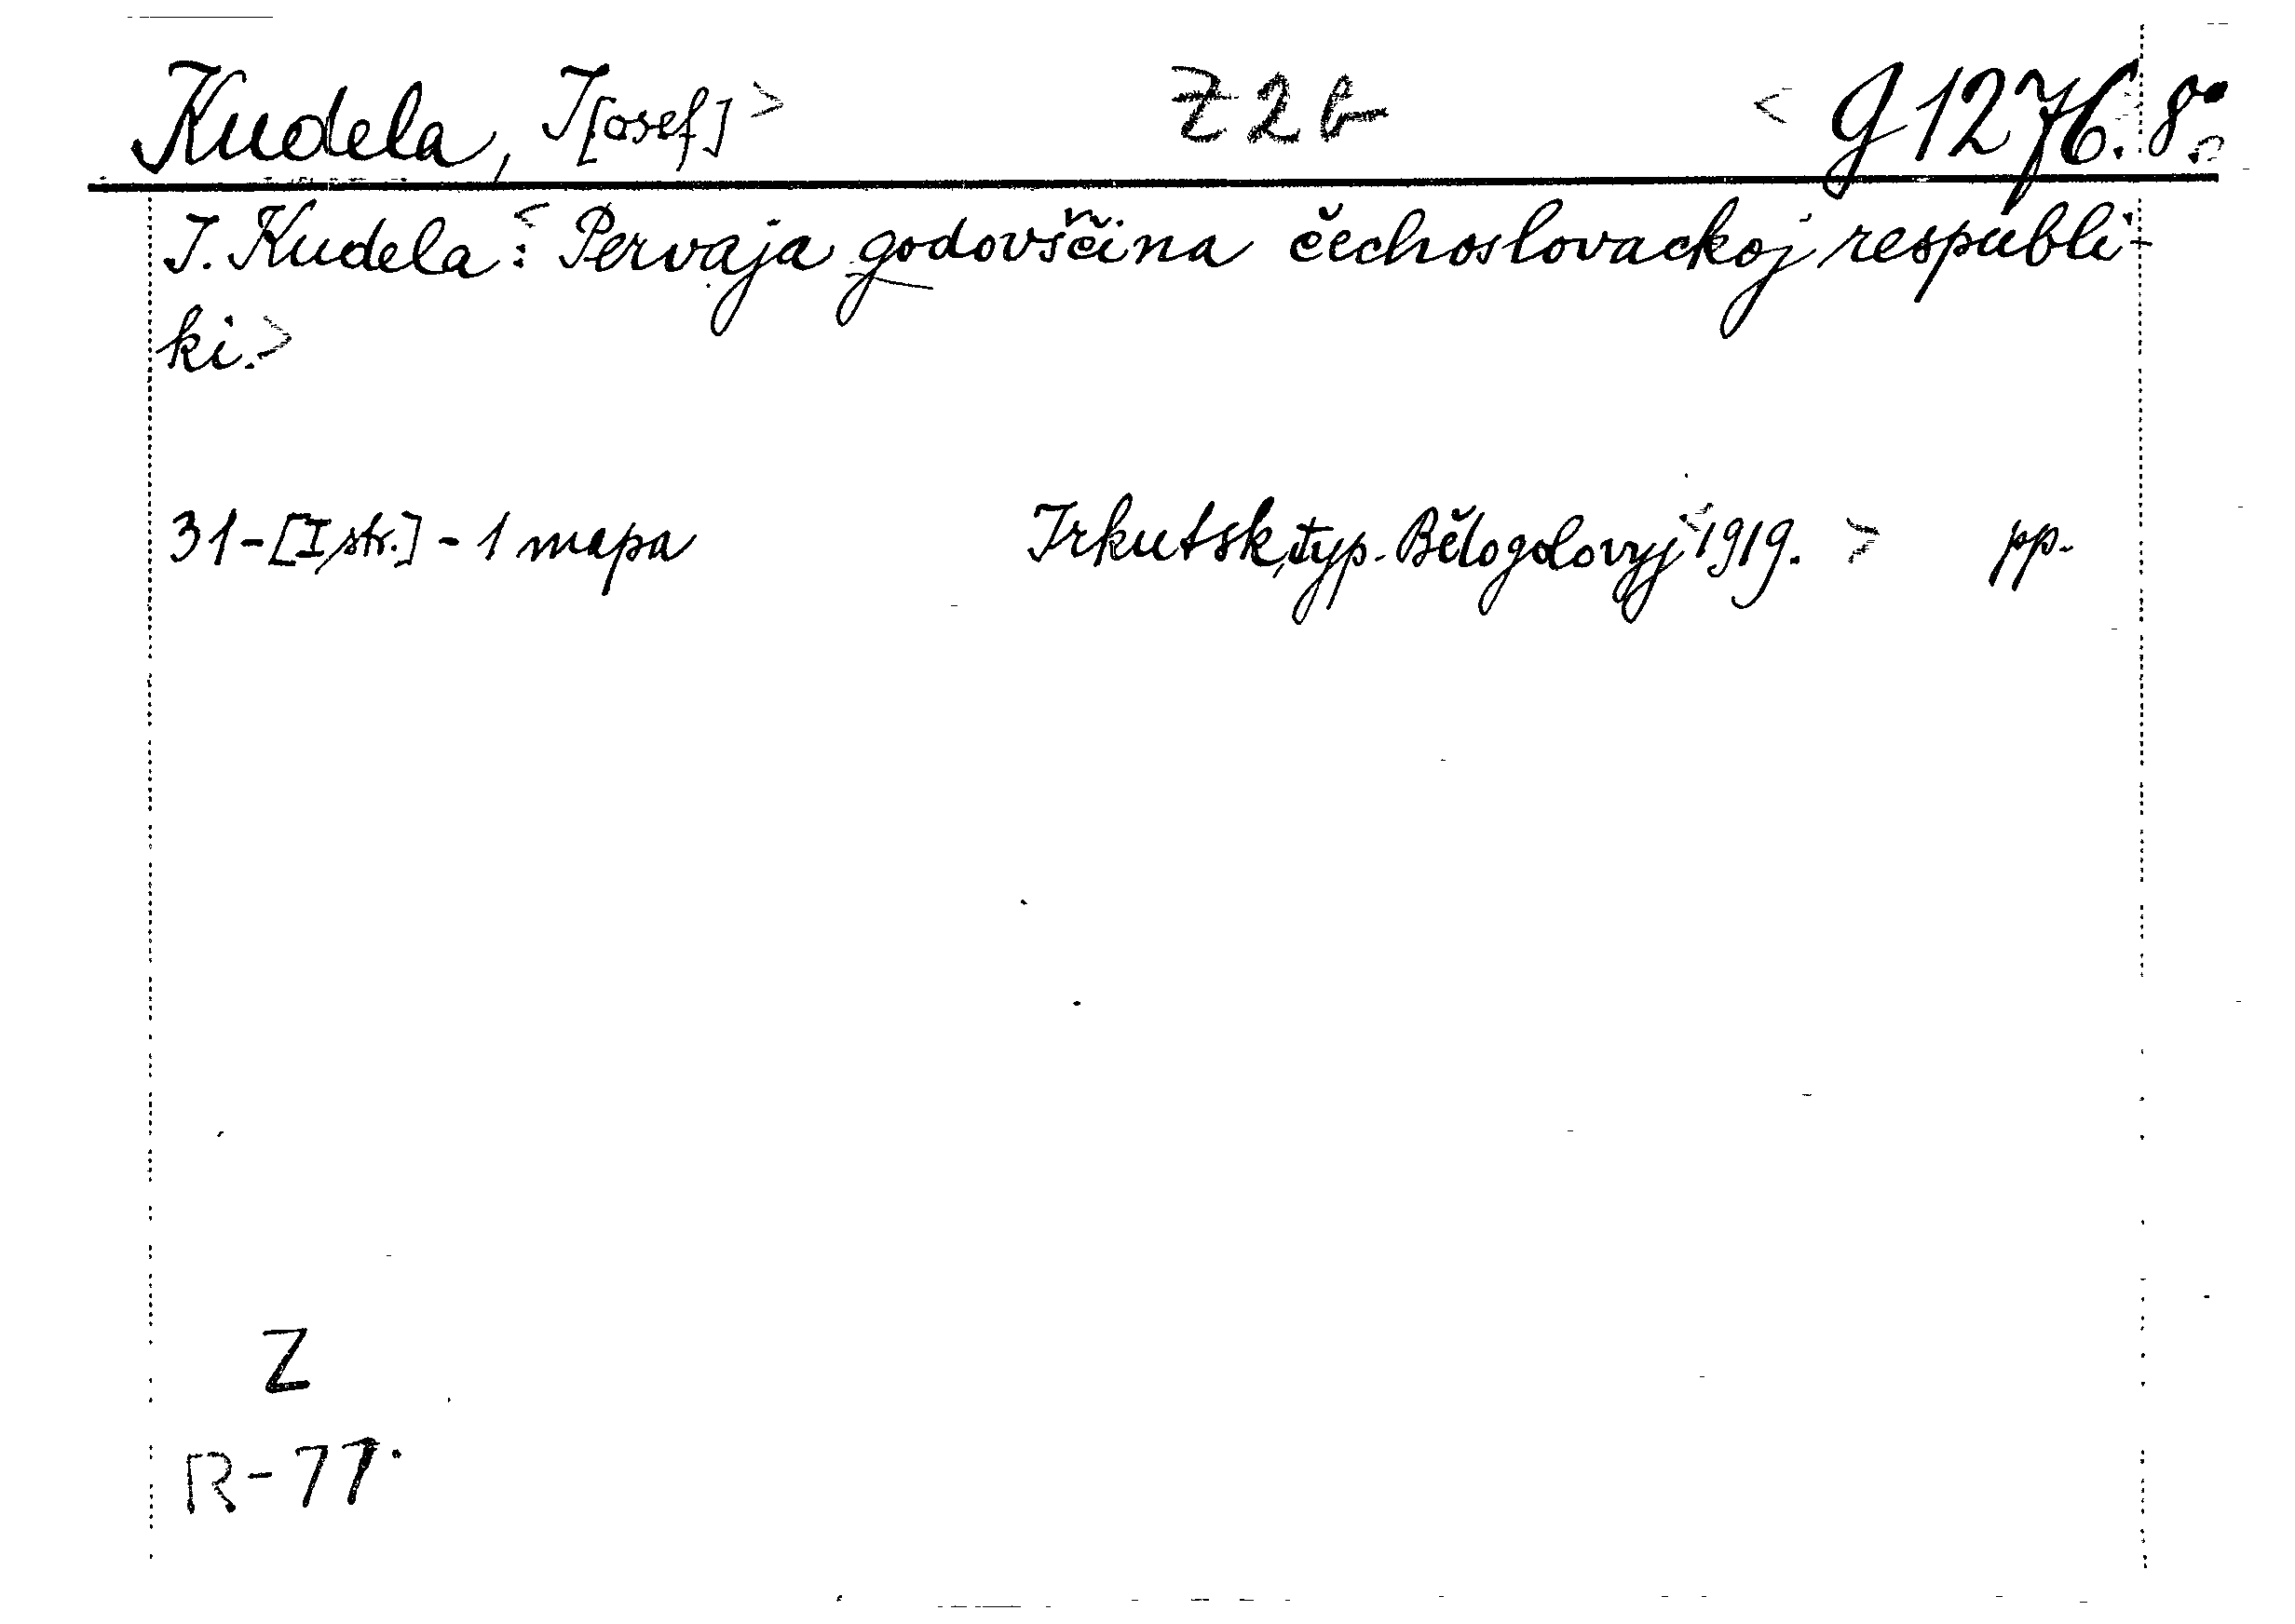 Kudela, J[osef]> Z 2 b < g 1276. 8°
J. Kudela: < Pervaja godovščina čechoslovackoj respubli-
ki. >
31-[I str.] - 1 mapa Irkutsk, typ. Bělogolovyj < 1919. > pp.
Z
R-77.